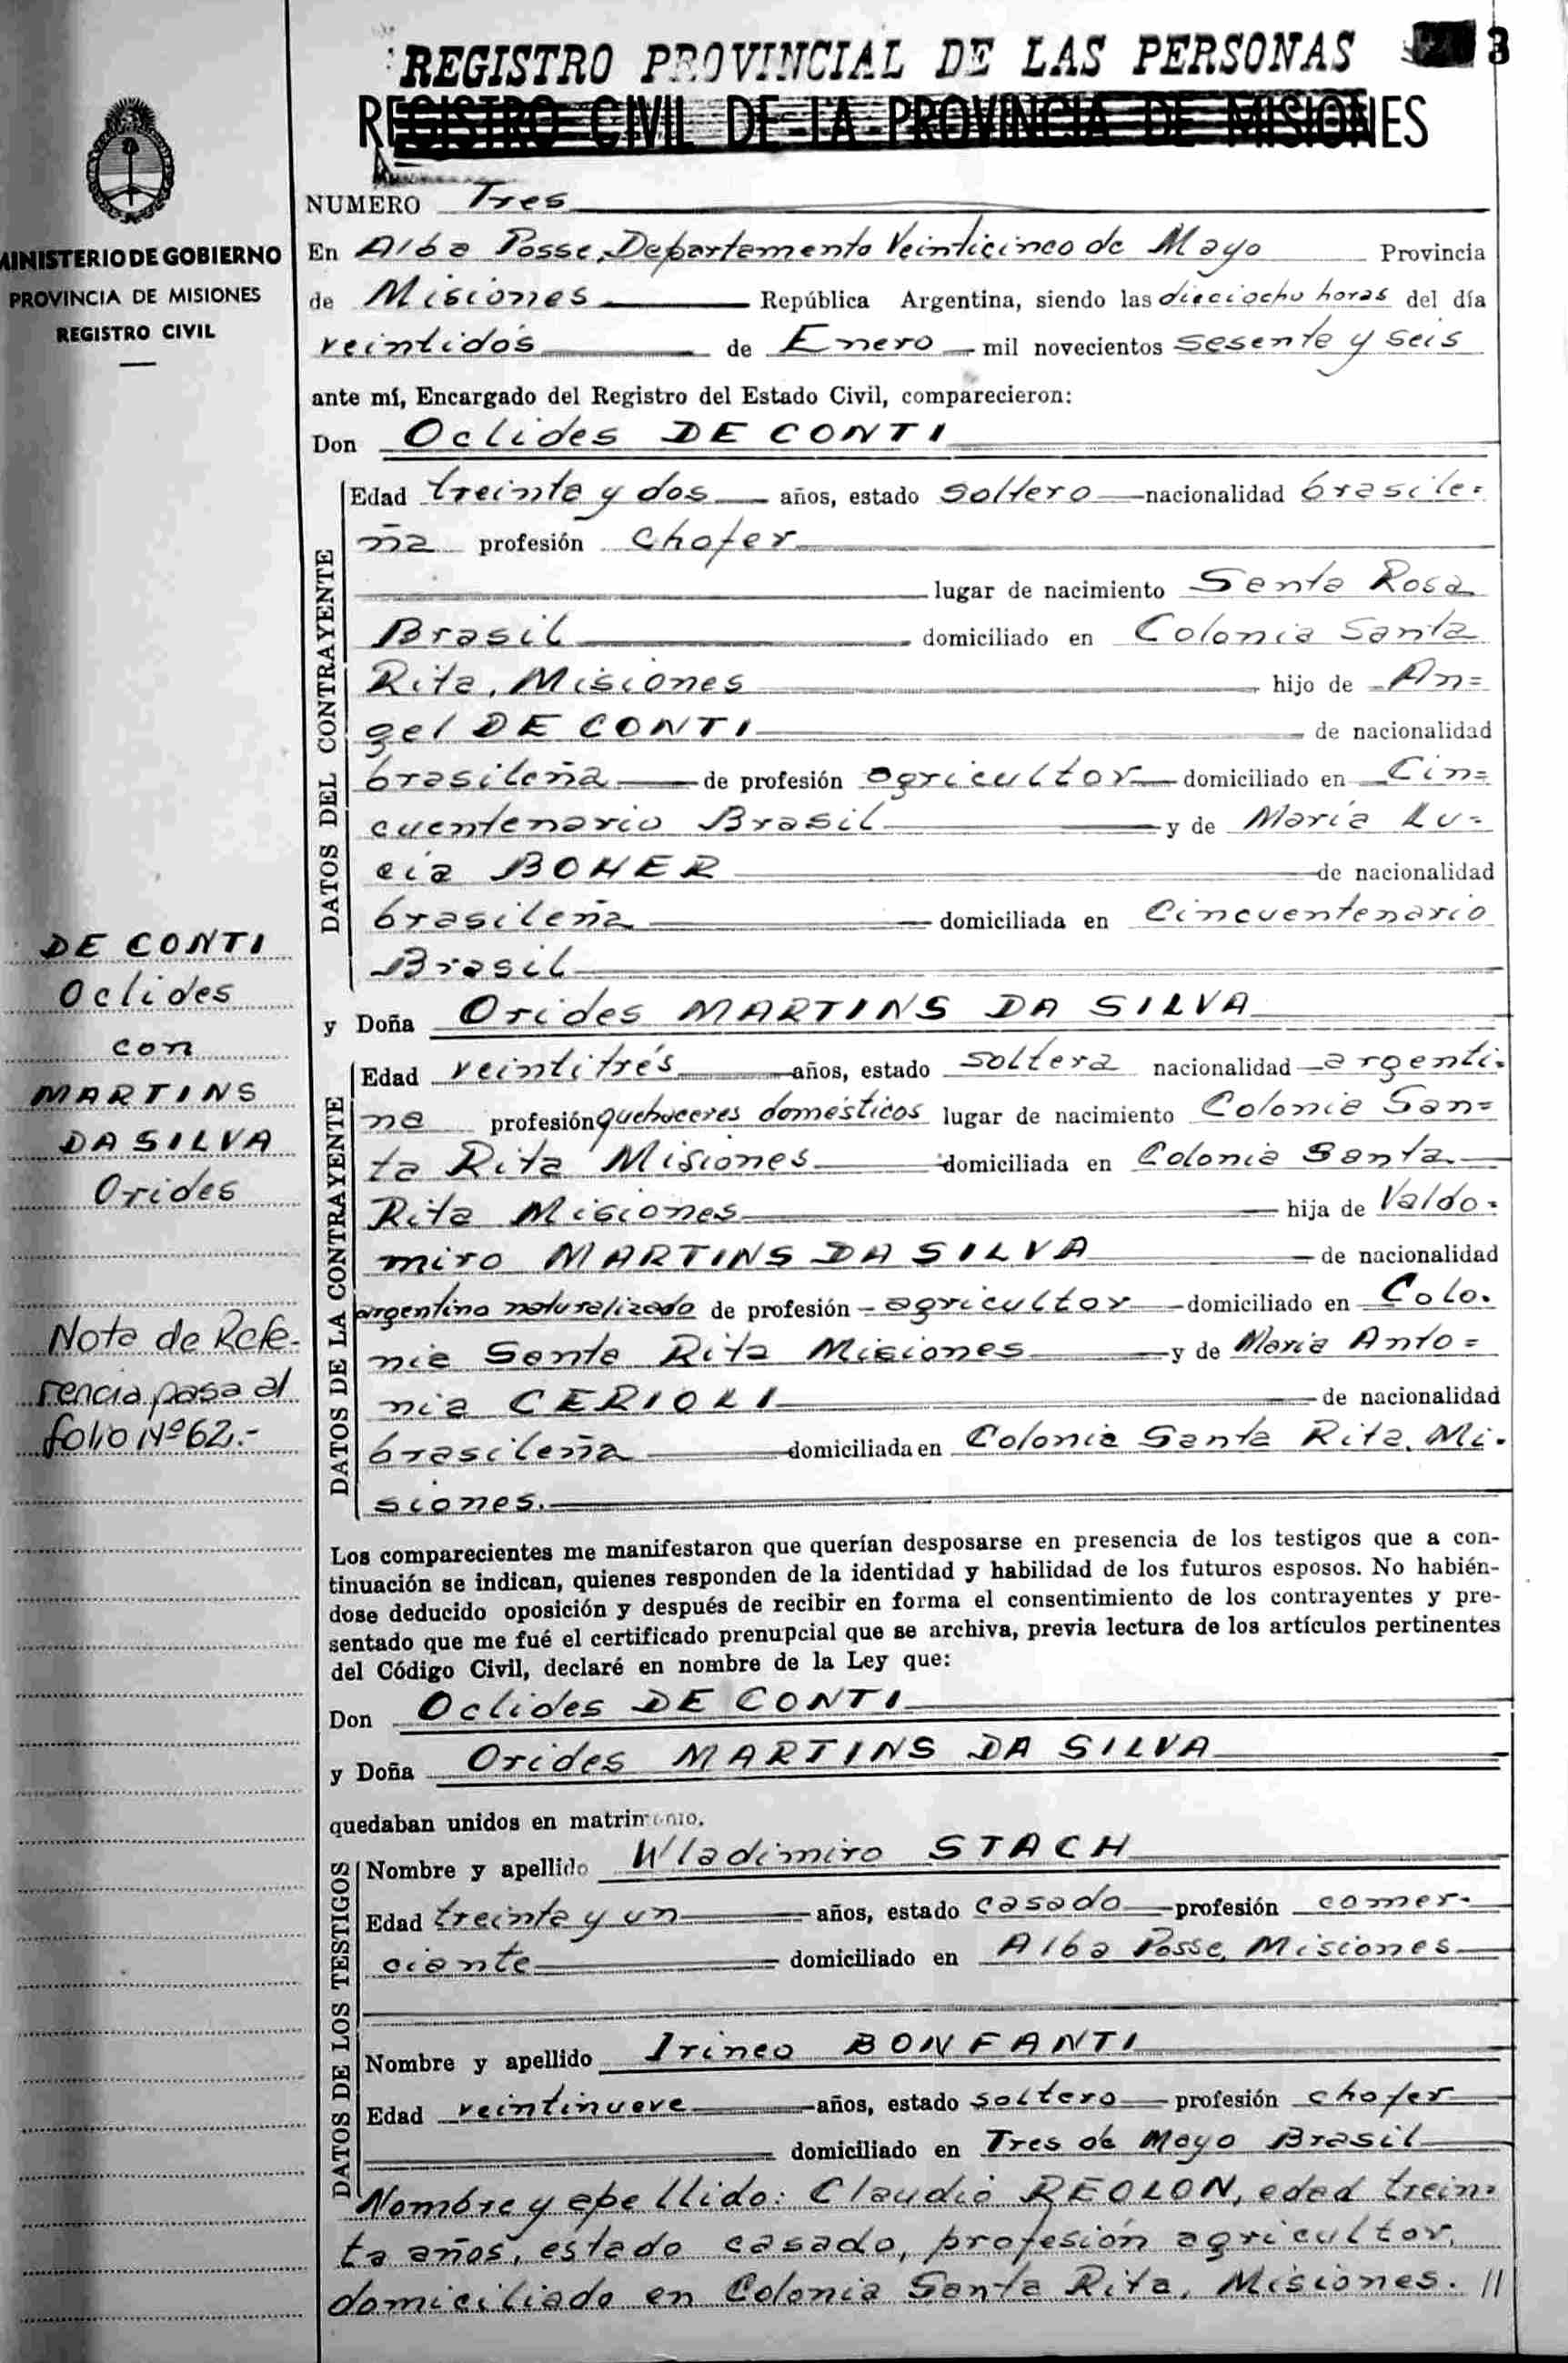 REGISTRO PROVINCIAL DE LAS PERSONAS 3
REGISTRO CIVIL DE LA PROVINCIA DE MISIONES
MINISTERIO DE GOBIERNO
PROVINCIA DE MISIONES
REGISTRO CIVIL
NUMERO Tres
En Alba Posse, Departamento Veinticinco de Mayo Provincia
de Misiones República Argentina, siendo las dieciocho horas del día
veintidós de Enero mil novecientos sesenta y seis
ante mí, Encargado del Registro del Estado Civil, comparecieron:
Don Oclides DE CONTI
DATOS DEL CONTRAYENTE
Edad treinta y dos años, estado soltero nacionalidad brasile=
ña profesión chofer
lugar de nacimiento Santa Rosa
Brasil domiciliado en Colonia Santa
Rita, Misiones hijo de An=
gel DE CONTI de nacionalidad
brasileña de profesión agricultor domiciliado en Cin=
cuentenario Brasil y de María Lu=
cia BOHER de nacionalidad
brasileña domiciliada en Cincuentenario
Brasil
y Doña Orides MARTINS DA SILVA
DATOS DE LA CONTRAYENTE
Edad veintitrés años, estado soltera nacionalidad argenti=
na profesión quehaceres domésticos lugar de nacimiento Colonia San=
ta Rita Misiones domiciliada en Colonia Santa
Rita Misiones hija de Valdo=
miro MARTINS DA SILVA de nacionalidad
argentino naturalizado de profesión agricultor domiciliado en Colo=
nia Santa Rita Misiones y de María Anto=
nia CERIOLI de nacionalidad
brasileña domiciliada en Colonia Santa Rita, Mi=
siones.
DE CONTI
Oclides
con
MARTINS
DA SILVA
Orides
Nota de Refe-
rencia pasa al
folio Nº 62.-
Los comparecientes me manifestaron que querían desposarse en presencia de los testigos que a con-
tinuación se indican, quienes responden de la identidad y habilidad de los futuros esposos. No habién-
dose deducido oposición y después de recibir en forma el consentimiento de los contrayentes y pre-
sentado que me fué el certificado prenupcial que se archiva, previa lectura de los artículos pertinentes
del Código Civil, declaré en nombre de la Ley que:
Don Oclides DE CONTI
y Doña Orides MARTINS DA SILVA
quedaban unidos en matrimonio.
DATOS DE LOS TESTIGOS
Nombre y apellido Wladimiro STACH
Edad treinta y un años, estado casado profesión comer=
ciante domiciliado en Alba Posse, Misiones
Nombre y apellido Irineo BONFANTI
Edad veintinueve años, estado soltero profesión chofer
domiciliado en Tres de Mayo Brasil
Nombre y apellido: Claudio REOLON, edad trein=
ta años, estado casado, profesión agricultor,
domiciliado en Colonia Santa Rita, Misiones. //